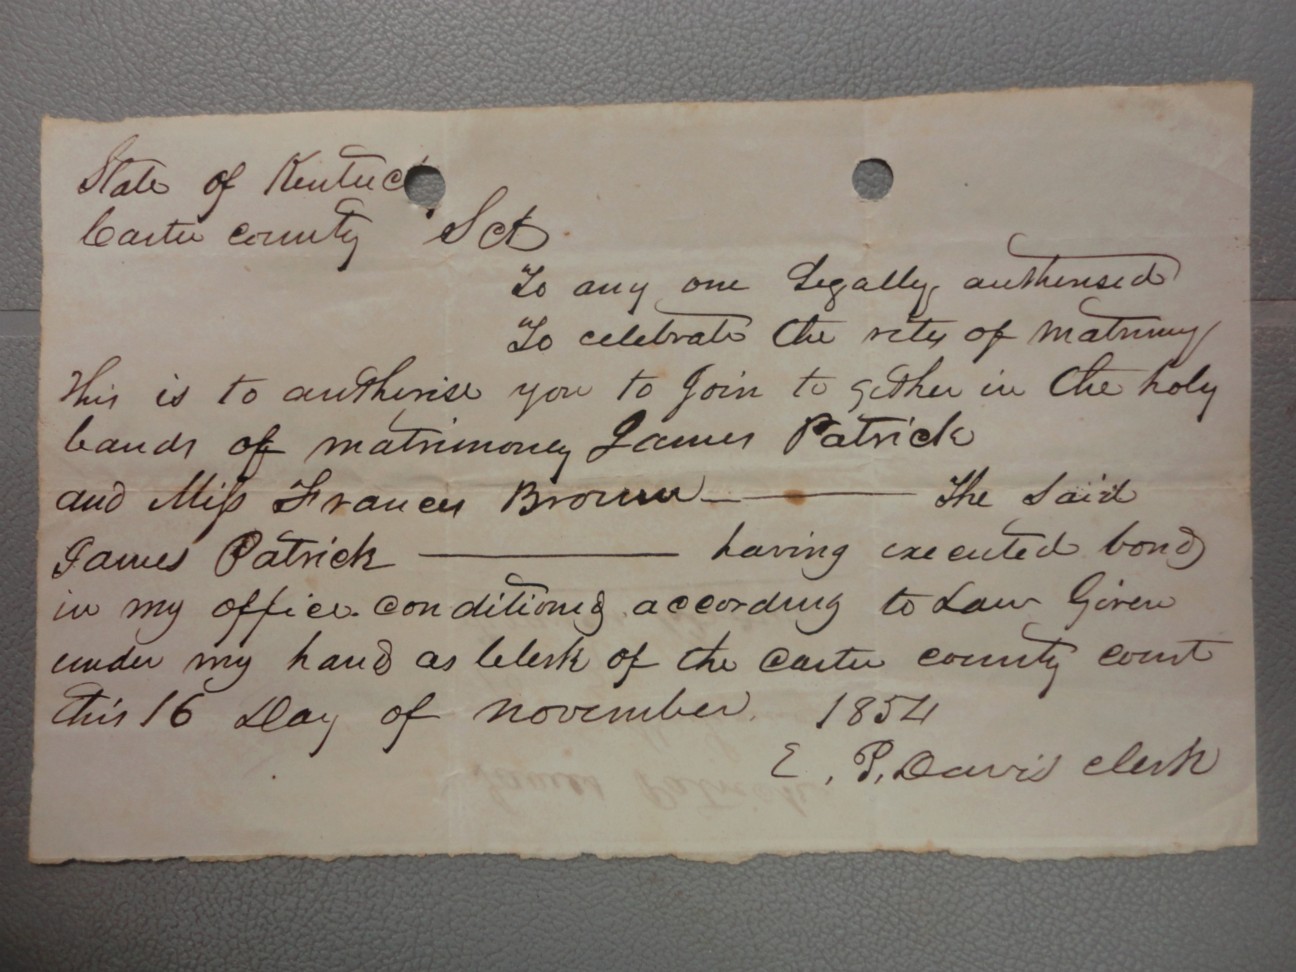 State of Kentuc
Carter County Sct
To any one Legally authorised
To celebrate the rites of Matrimony
This is to authorise you to Join to gether in the holy
bands of matrimoney James Patrick
and Miss Frances Brown The said
James Patrick having executed bond
in my office conditiond according to Law Given
under my hand as Clerk of the Carter county court
this 16 Day of November 1854
E. P. Davis clerk
James Patrick